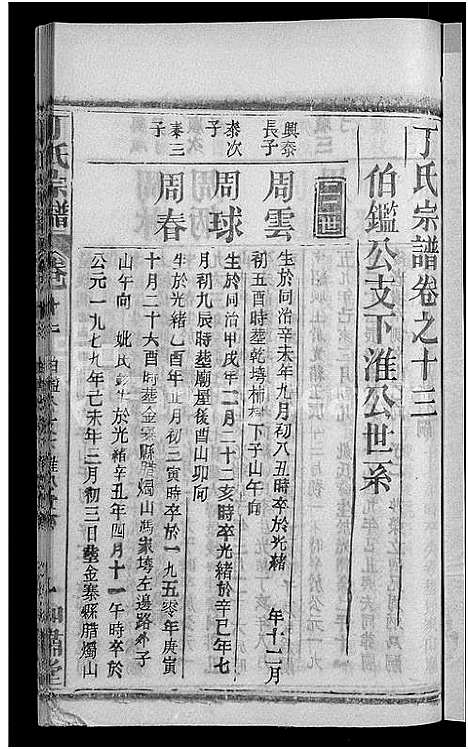 丁氏宗譜卷之十三
伯鑑公支下淮公世系
興泰長子
周雲
生於同治辛未年九月初八丑時卒於光緒 年十二月
初五酉時葬乾塝柿樹下子山午向
泰次子
周球
生於同治甲戌年二月二十三亥時卒光緒於辛巳年七
月初九辰時葬廟屋後酉山卯向
泰三子
周春
生於光緒乙酉年正月初三寅時卒於一九五零年庚寅
十月二十六酉時葬金寨縣腊燭山馮家塝左邊路外子
山午向 姚氏 生於光緒辛丑年四月十一午時卒於
公元一九七九年己未年三月初三日葬金寨縣腊燭山
丁氏宗譜 卷